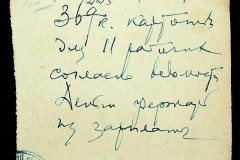 369 к. картошк
для 11 рабочих
согласно ведомость
Деньги удержать
из зарплаты